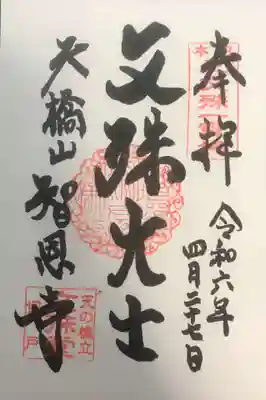 奉拝
令和六年
四月二十七日
文殊大士
天橋山智恩寺
天の橋立